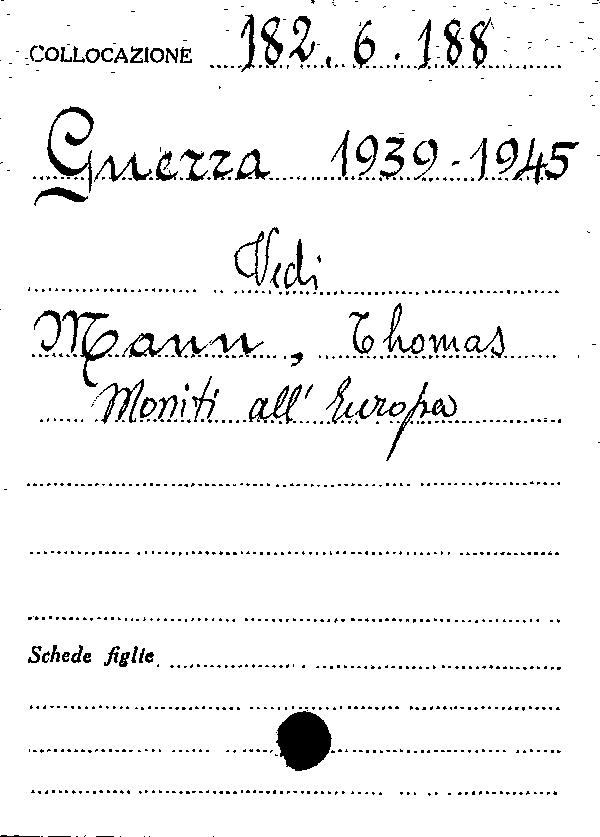 COLLOCAZIONE 182.6.188
Guerra 1939-1945
Vedi
Mann, Thomas
Moniti all'Europa
Schede figlie